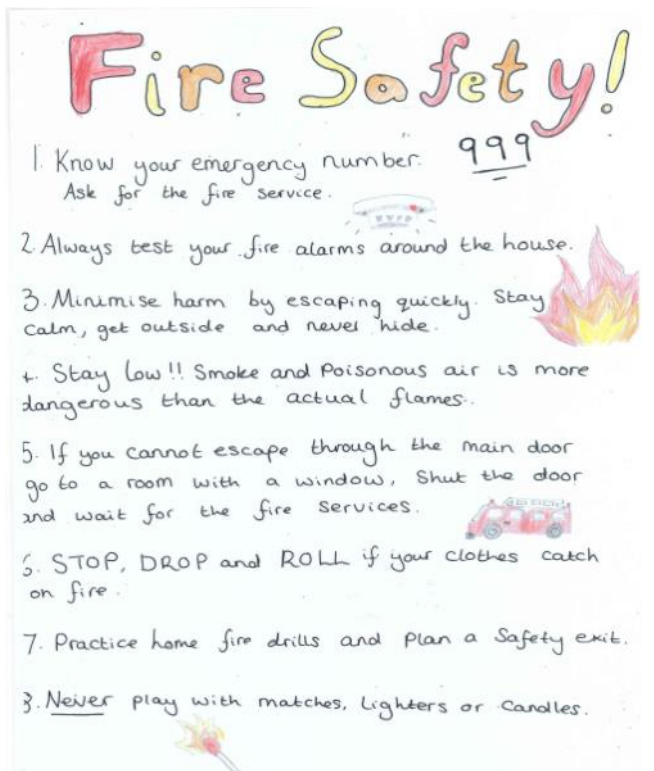 Fire Safety!
1. Know your emergency number. 999
Ask for the fire service.
2. Always test your fire alarms around the house.
3. Minimise harm by escaping quickly. Stay
calm, get outside and never hide.
4. Stay low!! Smoke and Poisonous air is more
dangerous than the actual flames.
5. If you cannot escape through the main door
go to a room with a window, Shut the door
and wait for the fire services.
6. STOP, DROP and ROLL if your clothes catch
on fire.
7. Practice home fire drills and Plan a Safety exit.
8. Never play with matches, Lighters or Candles.